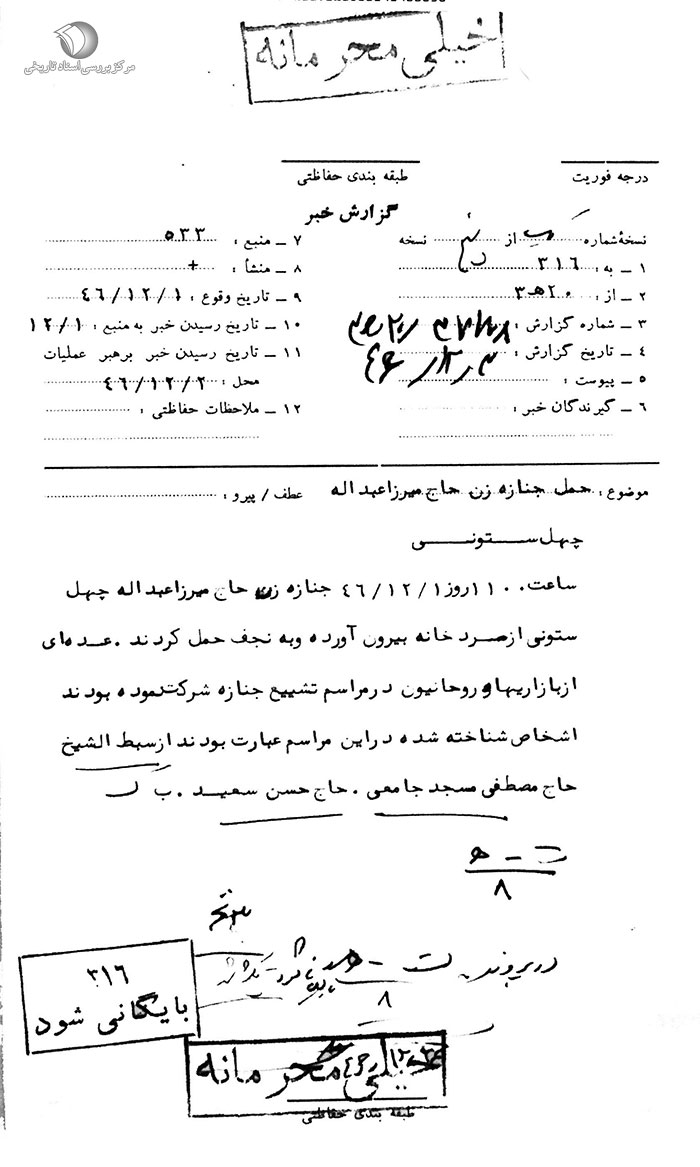 خیلی محرمانه
مرکز بررسی اسناد تاریخی
درجه فوریت
طبقه بندی حفاظتی
گزارش خبر
نسخهٔ شماره از نسخه
۱ ـ به : ۳۱۶
۲ ـ از : ۲۰ هـ ۳
۳ ـ شماره گزارش :
۴ ـ تاریخ گزارش :
۵ ـ پیوست :
۶ ـ گیرندگان خبر :
۷ ـ منبع : ۵۳۳
۸ ـ منشأ : +
۹ ـ تاریخ وقوع : ۴۶/۱۲/۱
۱۰ ـ تاریخ رسیدن خبر به منبع : ۱۲/۱
۱۱ ـ تاریخ رسیدن خبر برهبر عملیات
محل : ۴۶/۱۲/۲
۱۲ ـ ملاحظات حفاظتی :
موضوع : حمل جنازه زن حاج میرزا عبداله عطف / پیرو :
چهل ستونی
ساعت ۱۱۰۰ روز ۴۶/۱۲/۱ جنازه زن حاج میرزا عبداله چهل
ستونی از سرد خانه بیرون آورده و به نجف حمل کردند . عده ای
از بازاریها و روحانیون در مراسم تشییع جنازه شرکت نموده بودند
اشخاص شناخته شده در این مراسم عبارت بودند از سبط الشیخ
حاج مصطفی مسجد جامعی . حاج حسن سعید .
۸
در پرونده
۸
۳۱۶
بایگانی شود
خیلی محرمانه
طبقه بندی حفاظتی